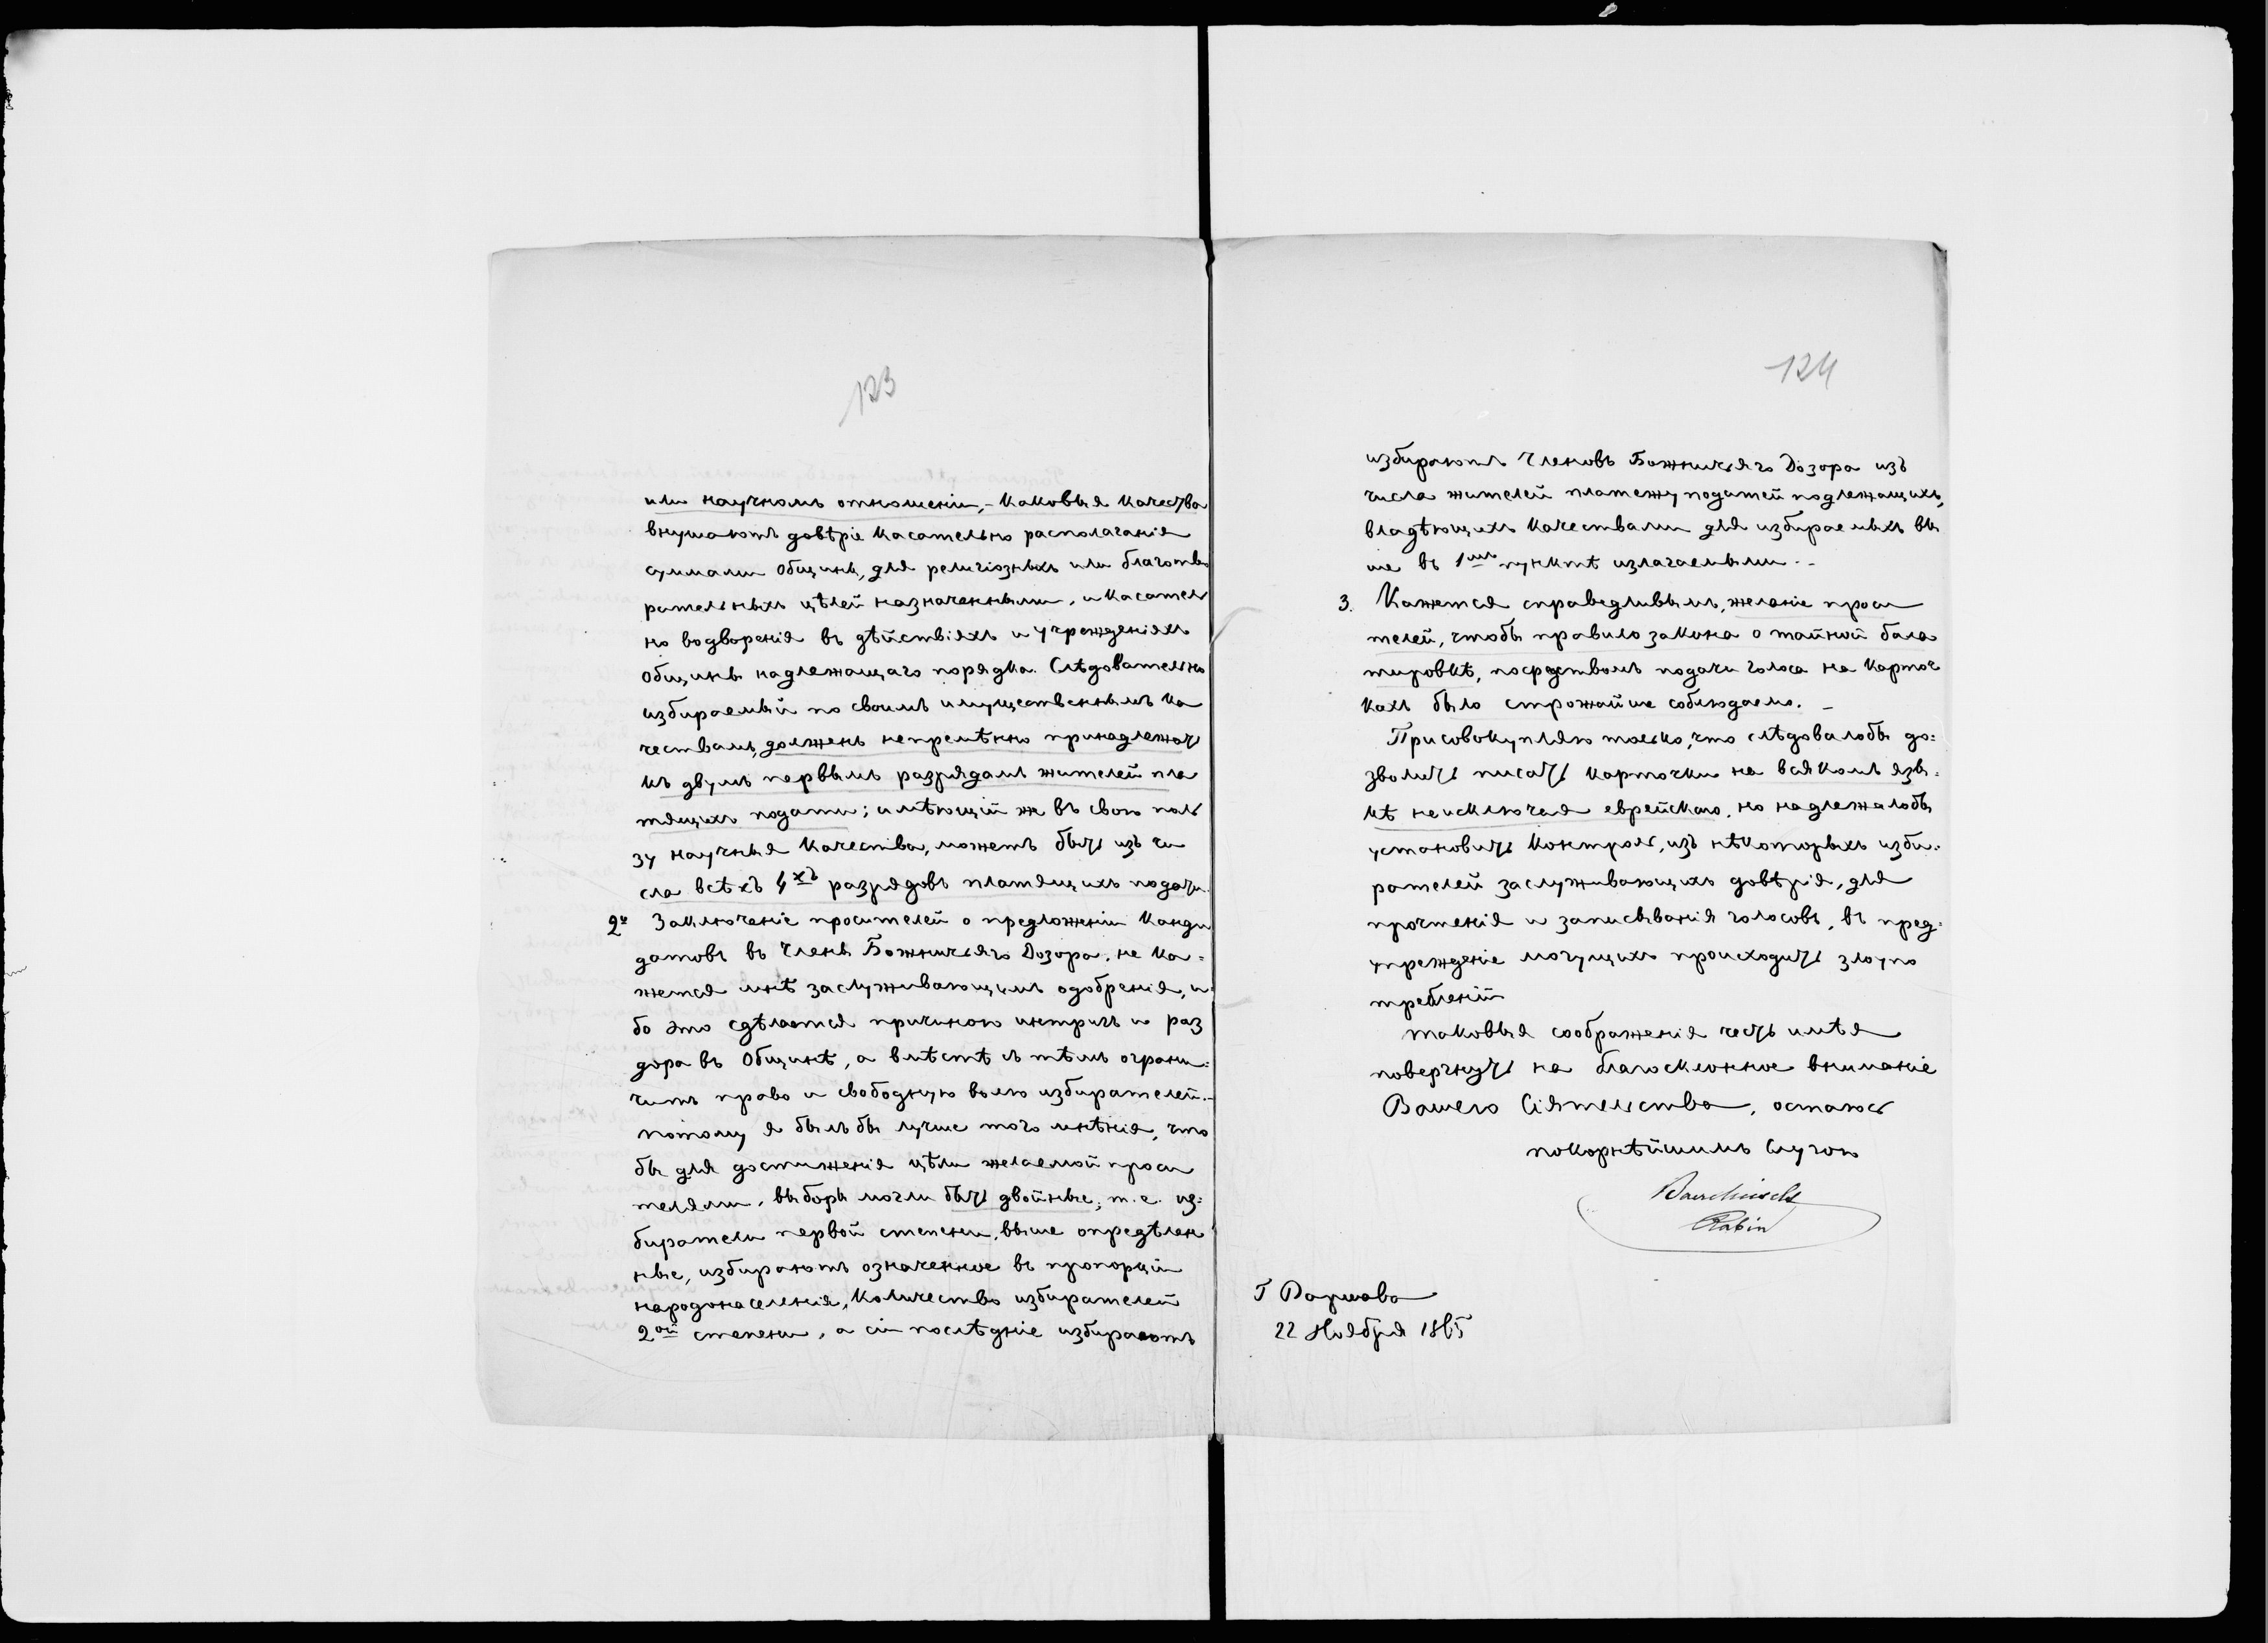 123
или научномъ отношеніи, - каковыя качества
внушаютъ довѣріе касательно располаганія
суммами общины, для религіозныхъ или благотво
рительныхъ цѣлей назначенными, и касатель
но водворенія въ дѣйствіяхъ и учрежденіяхъ
Общины надлежащаго порядка. Слѣдовательно
избираемый по своимъ имущественнымъ ка
чествамъ, долженъ непремѣнно принадлежать
къ двумъ первымъ разрядамъ жителей пла
тящихъ подати; имѣющій же въ свою поль
зу научныя качества, можетъ быть изъ чи
сла всѣхъ 4хъ разрядовъ платящихъ подати.
2е Заключеніе просителей о предложеніи канди
датовъ въ Члены Божничьяго Дозора, не ка=
жется мнѣ заслуживающимъ одобренія, и=
бо это сдѣлается причиною интригъ и раз
дора въ Общинѣ, а вмѣстѣ съ тѣмъ ограни=
читъ право и свободную волю избирателей.-
потому я былъ бы лучше того мнѣнія, что
бы для достиженія цѣли желаемой проси
телями, выборы могли быть двойные; т. е. из=
биратели первой степени, выше опредѣлен
ные, избираютъ означенное въ пропорціи
народонаселенія, количество избирателей
2ой степени, а сіи послѣдніе избираютъ
124
избираютъ Членовъ Божничьяго Дозора изъ
числа жителей платежу податей подлежащихъ,
владѣющихъ качествами для избираемыхъ вы
ше въ 1мъ пунктѣ излагаемыми. -
3. Кажется справедливымъ, желаніе проси
телей, чтобы правило закона о тайной бало
тировкѣ, посредствомъ подачи голоса на карточ
кахъ было строжайше соблюдаемо. -
Присовокупляю только, что слѣдовалобы до=
зволить писать карточки на всякомъ язы=
кѣ неисключая еврейскаго, но надлежалобы
установить контроль, изъ нѣкоторыхъ изби=
рателей заслуживающихъ довѣрія, для
прочтенія и записыванія голосовъ, въ пред=
упрежденіе могущихъ происходить злоупо
требленій
таковыя соображенія честь имѣя
повергнуть на благосклонное вниманіе
Вашего Сіятельства, остаюсь
покорнѣйшимъ слугою
Rabin
Г Варшава
22 Ноября 1865